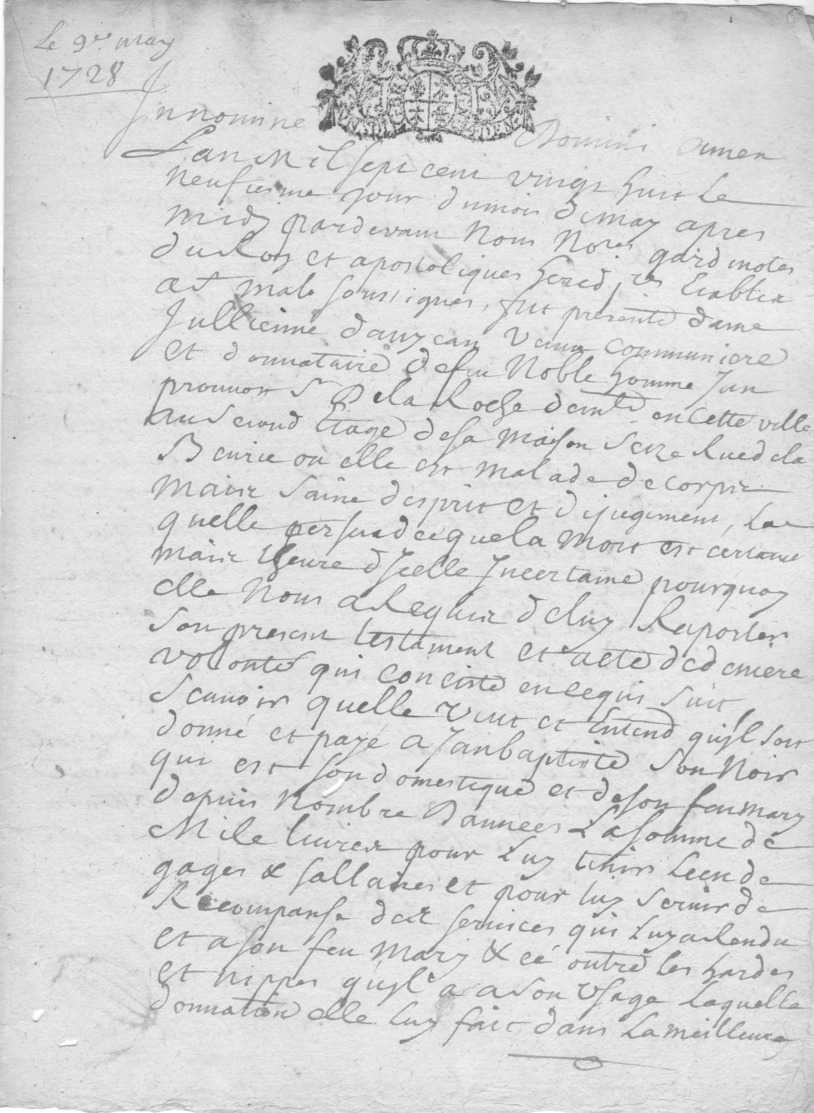 Le 9e may
1728
In nomine Domini amen
Lan Mil sept cent vingt huit le
neufiesme jour dumois de may apres
midy pardevant Nous Nores gardnotes
du Roy et apostoliques hered. res Etablis
a St malo soussignés, fut presente dame
Jullienne danycan Veuve communiere
et donnataire de feu Noble homme Jan
Sr De la Roche demte en cette ville
au Second Etage desa maison Seize Rue dela
Beurie ou elle est malade de corps
maise saine desprit et de jugement, La
quelle persuadee que la mort est certaine
maise lheure dicelle Incertaine pourquoy
elle Nous a Requis de luy Raporter
son present testament et acte de derniere
volonté qui conciste en ce qui suit
Scavoir quelle Veut et Entend quyl soit
donné et payé a Jan baptiste Son Noir
qui est son domestique et de son feu mary
depuis Nombre Dannees La somme de
Mile livres pour Luy tenir Leu de
gages & sallaires et pour luy servir de
Recompanse des services qui Luy a Rendu
et a son feu mary & ce outre les hardes
et nippes quyl a a son Usage Laquelle
donnation elle luy fait dans La meilleure